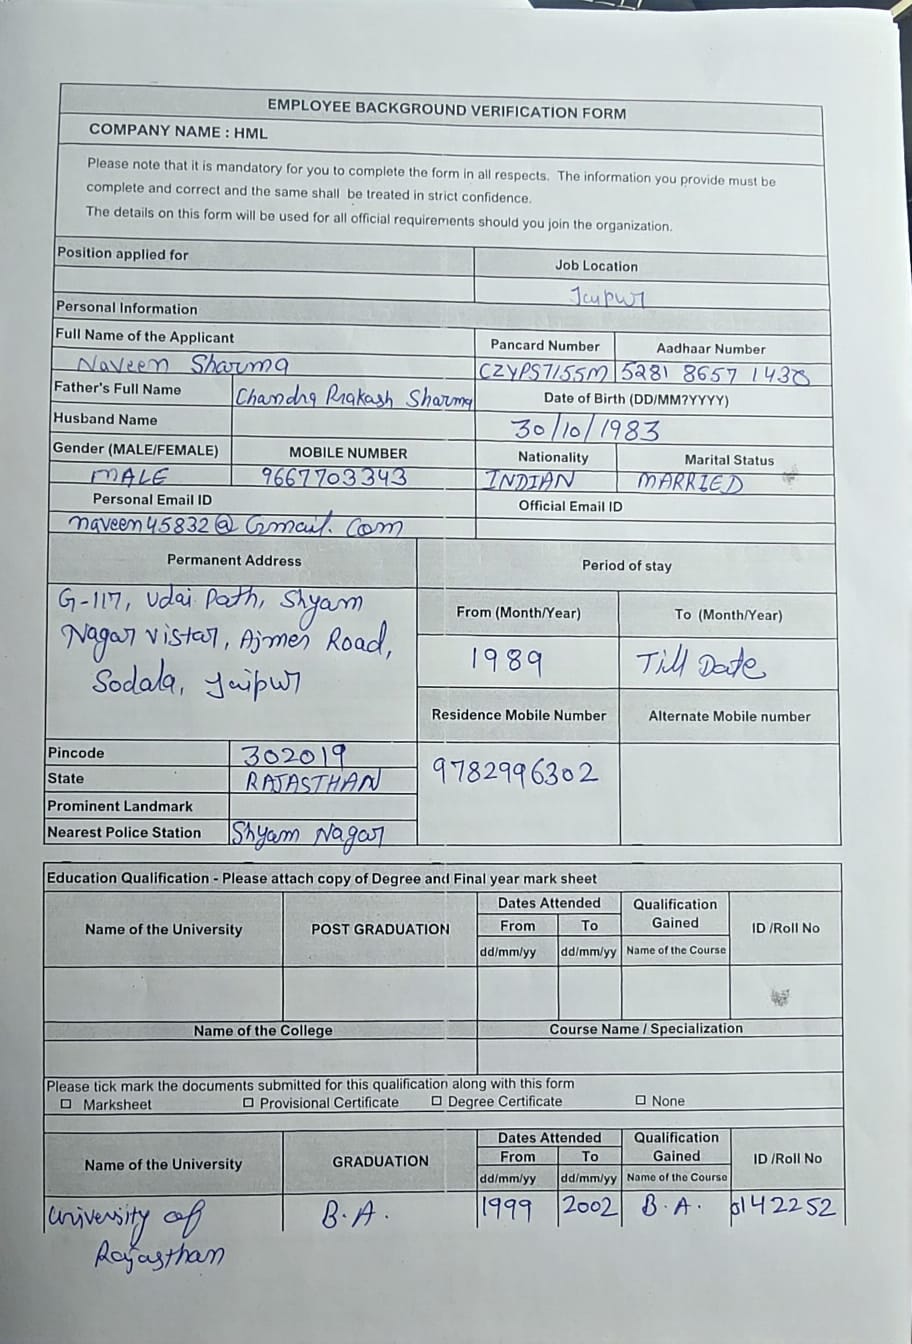 EMPLOYEE BACKGROUND VERIFICATION FORM
COMPANY NAME : HML
Please note that it is mandatory for you to complete the form in all respects. The information you provide must be
complete and correct and the same shall be treated in strict confidence.
The details on this form will be used for all official requirements should you join the organization.
Position applied for
Job Location
Jaipur
Personal Information
Full Name of the Applicant
Pancard Number
Aadhaar Number
Naveen Sharma
CZYPS7155M
5281 8657 1438
Father's Full Name
Chandra Prakash Sharma
Date of Birth (DD/MM?YYYY)
Husband Name
30/10/1983
Gender (MALE/FEMALE)
MOBILE NUMBER
Nationality
Marital Status
MALE
9667703343
INDIAN
MARRIED
Personal Email ID
Official Email ID
naveen45832@Gmail.Com
Permanent Address
Period of stay
G-117, Udai Path, Shyam
Nagar Vistar, Ajmer Road,
Sodala, Jaipur
From (Month/Year)
To (Month/Year)
1989
Till Date
Residence Mobile Number
Alternate Mobile number
Pincode
302019
9782996302
State
RAJASTHAN
Prominent Landmark
Nearest Police Station
Shyam Nagar
Education Qualification - Please attach copy of Degree and Final year mark sheet
Name of the University
POST GRADUATION
Dates Attended
From
To
dd/mm/yy
dd/mm/yy
Qualification
Gained
Name of the Course
ID /Roll No
Name of the College
Course Name / Specialization
Please tick mark the documents submitted for this qualification along with this form
☐ Marksheet ☐ Provisional Certificate ☐ Degree Certificate ☐ None
Name of the University
GRADUATION
Dates Attended
From
To
dd/mm/yy
dd/mm/yy
Qualification
Gained
Name of the Course
ID /Roll No
University of
Rajasthan
B.A.
1999
2002
B.A.
0142252